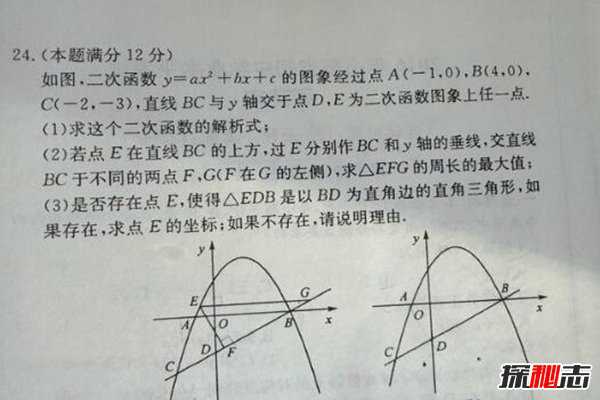 24.(本题满分12分)
如图,二次函数 y=ax²+bx+c 的图象经过点 A(-1,0),B(4,0),
C(-2,-3),直线 BC 与 y 轴交于点 D,E 为二次函数图象上任一点.
(1)求这个二次函数的解析式;
(2)若点 E 在直线 BC 的上方,过 E 分别作 BC 和 y 轴的垂线,交直线
BC 于不同的两点 F,G(F 在 G 的左侧),求△EFG 的周长的最大值;
(3)是否存在点 E,使得△EDB 是以 BD 为直角边的直角三角形,如
果存在,求点 E 的坐标;如果不存在,请说明理由.
y
E
G
A
O
B
x
D
F
C
y
A
O
B
x
D
C
探秘志